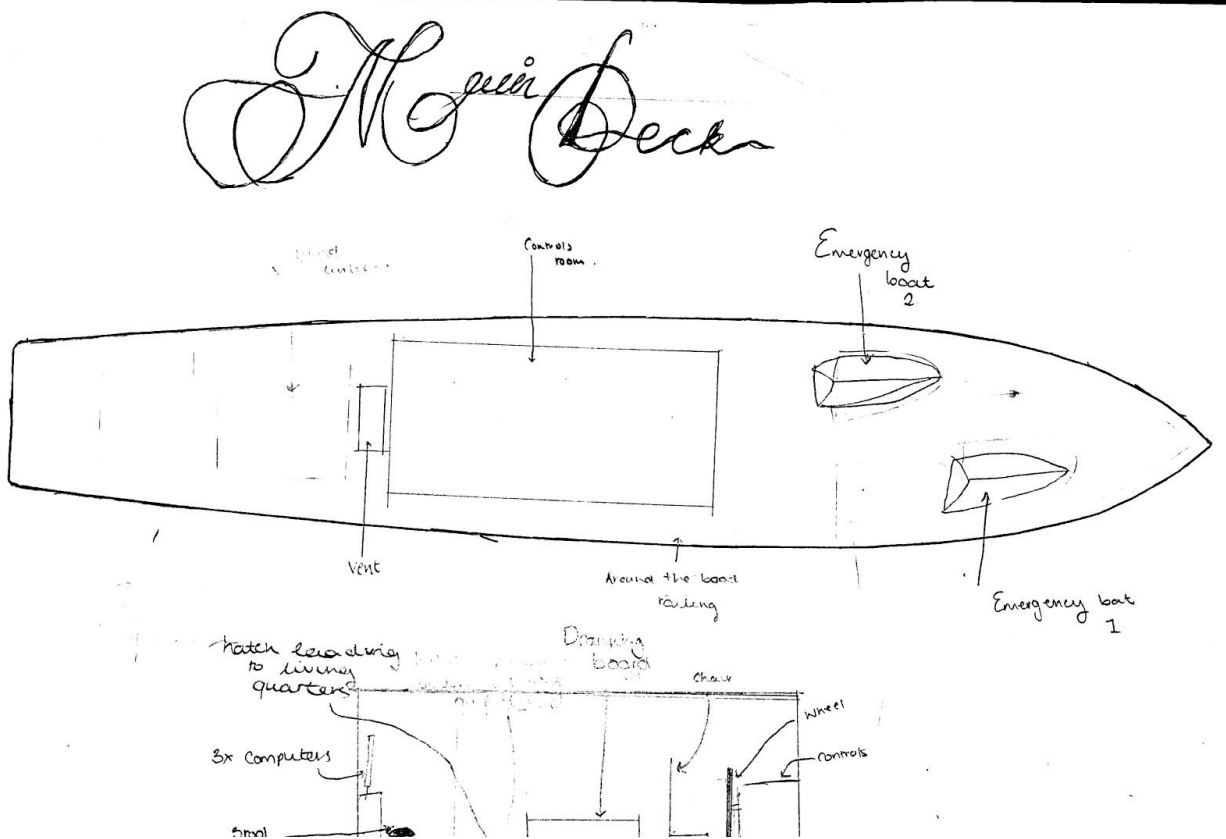 Main Deck
Controls
room.
Emergency
boat
2
Vent
Around the boad
railing
Emergency bat
1
hatch leading
to living
quarters
Drawing
board
Chair
Wheel
3x Computers
controls
Stool